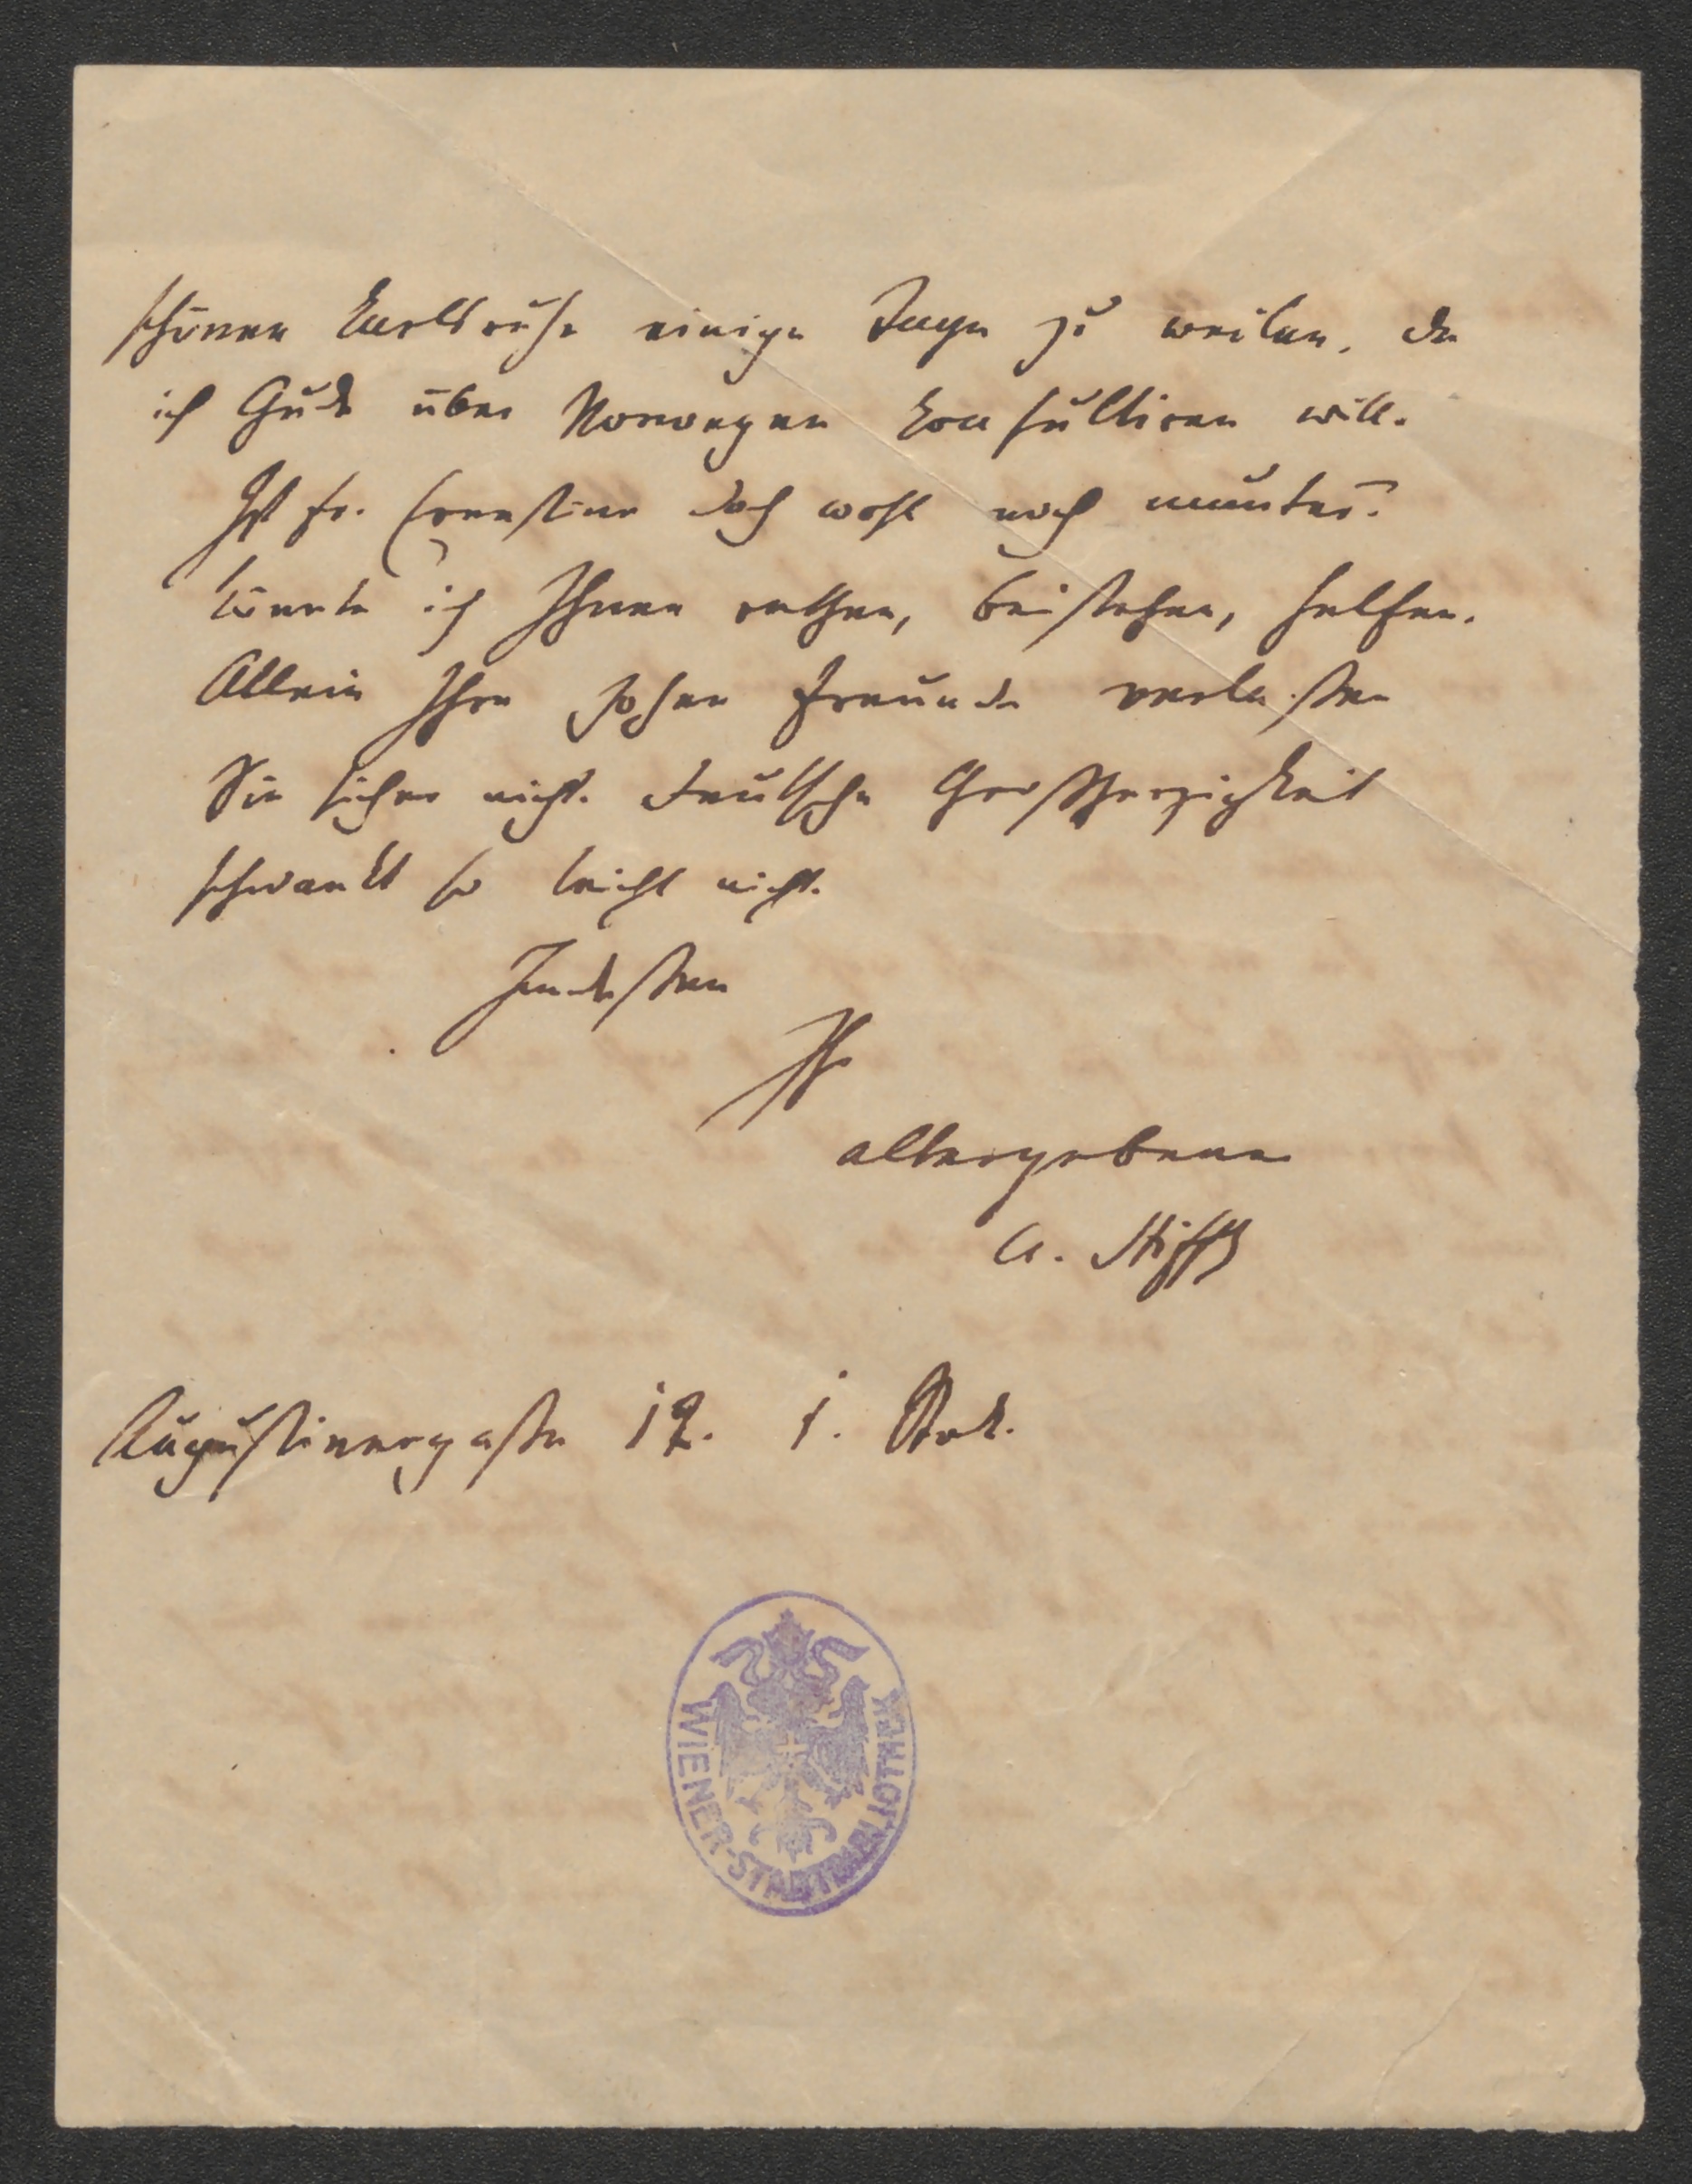 schönen Karlsruhe einige Tage zu weilen, da
ich Gude über Norwegen konsultiren will.
Ist Fr. Ernestine doch wohl noch munter?
Könnte ich Ihnen rathen, beistehen, helfen.
Allein Ihre hohen Freunde verlassen
Sie sicher nicht. Deutsche Großherzigkeit
schwankt so leicht nicht.
Indessen
Ihr
altergebener
A. Stifft
Augustinergasse 12. 1. Stok.
WIENER-STADTBIBLIOTHEK